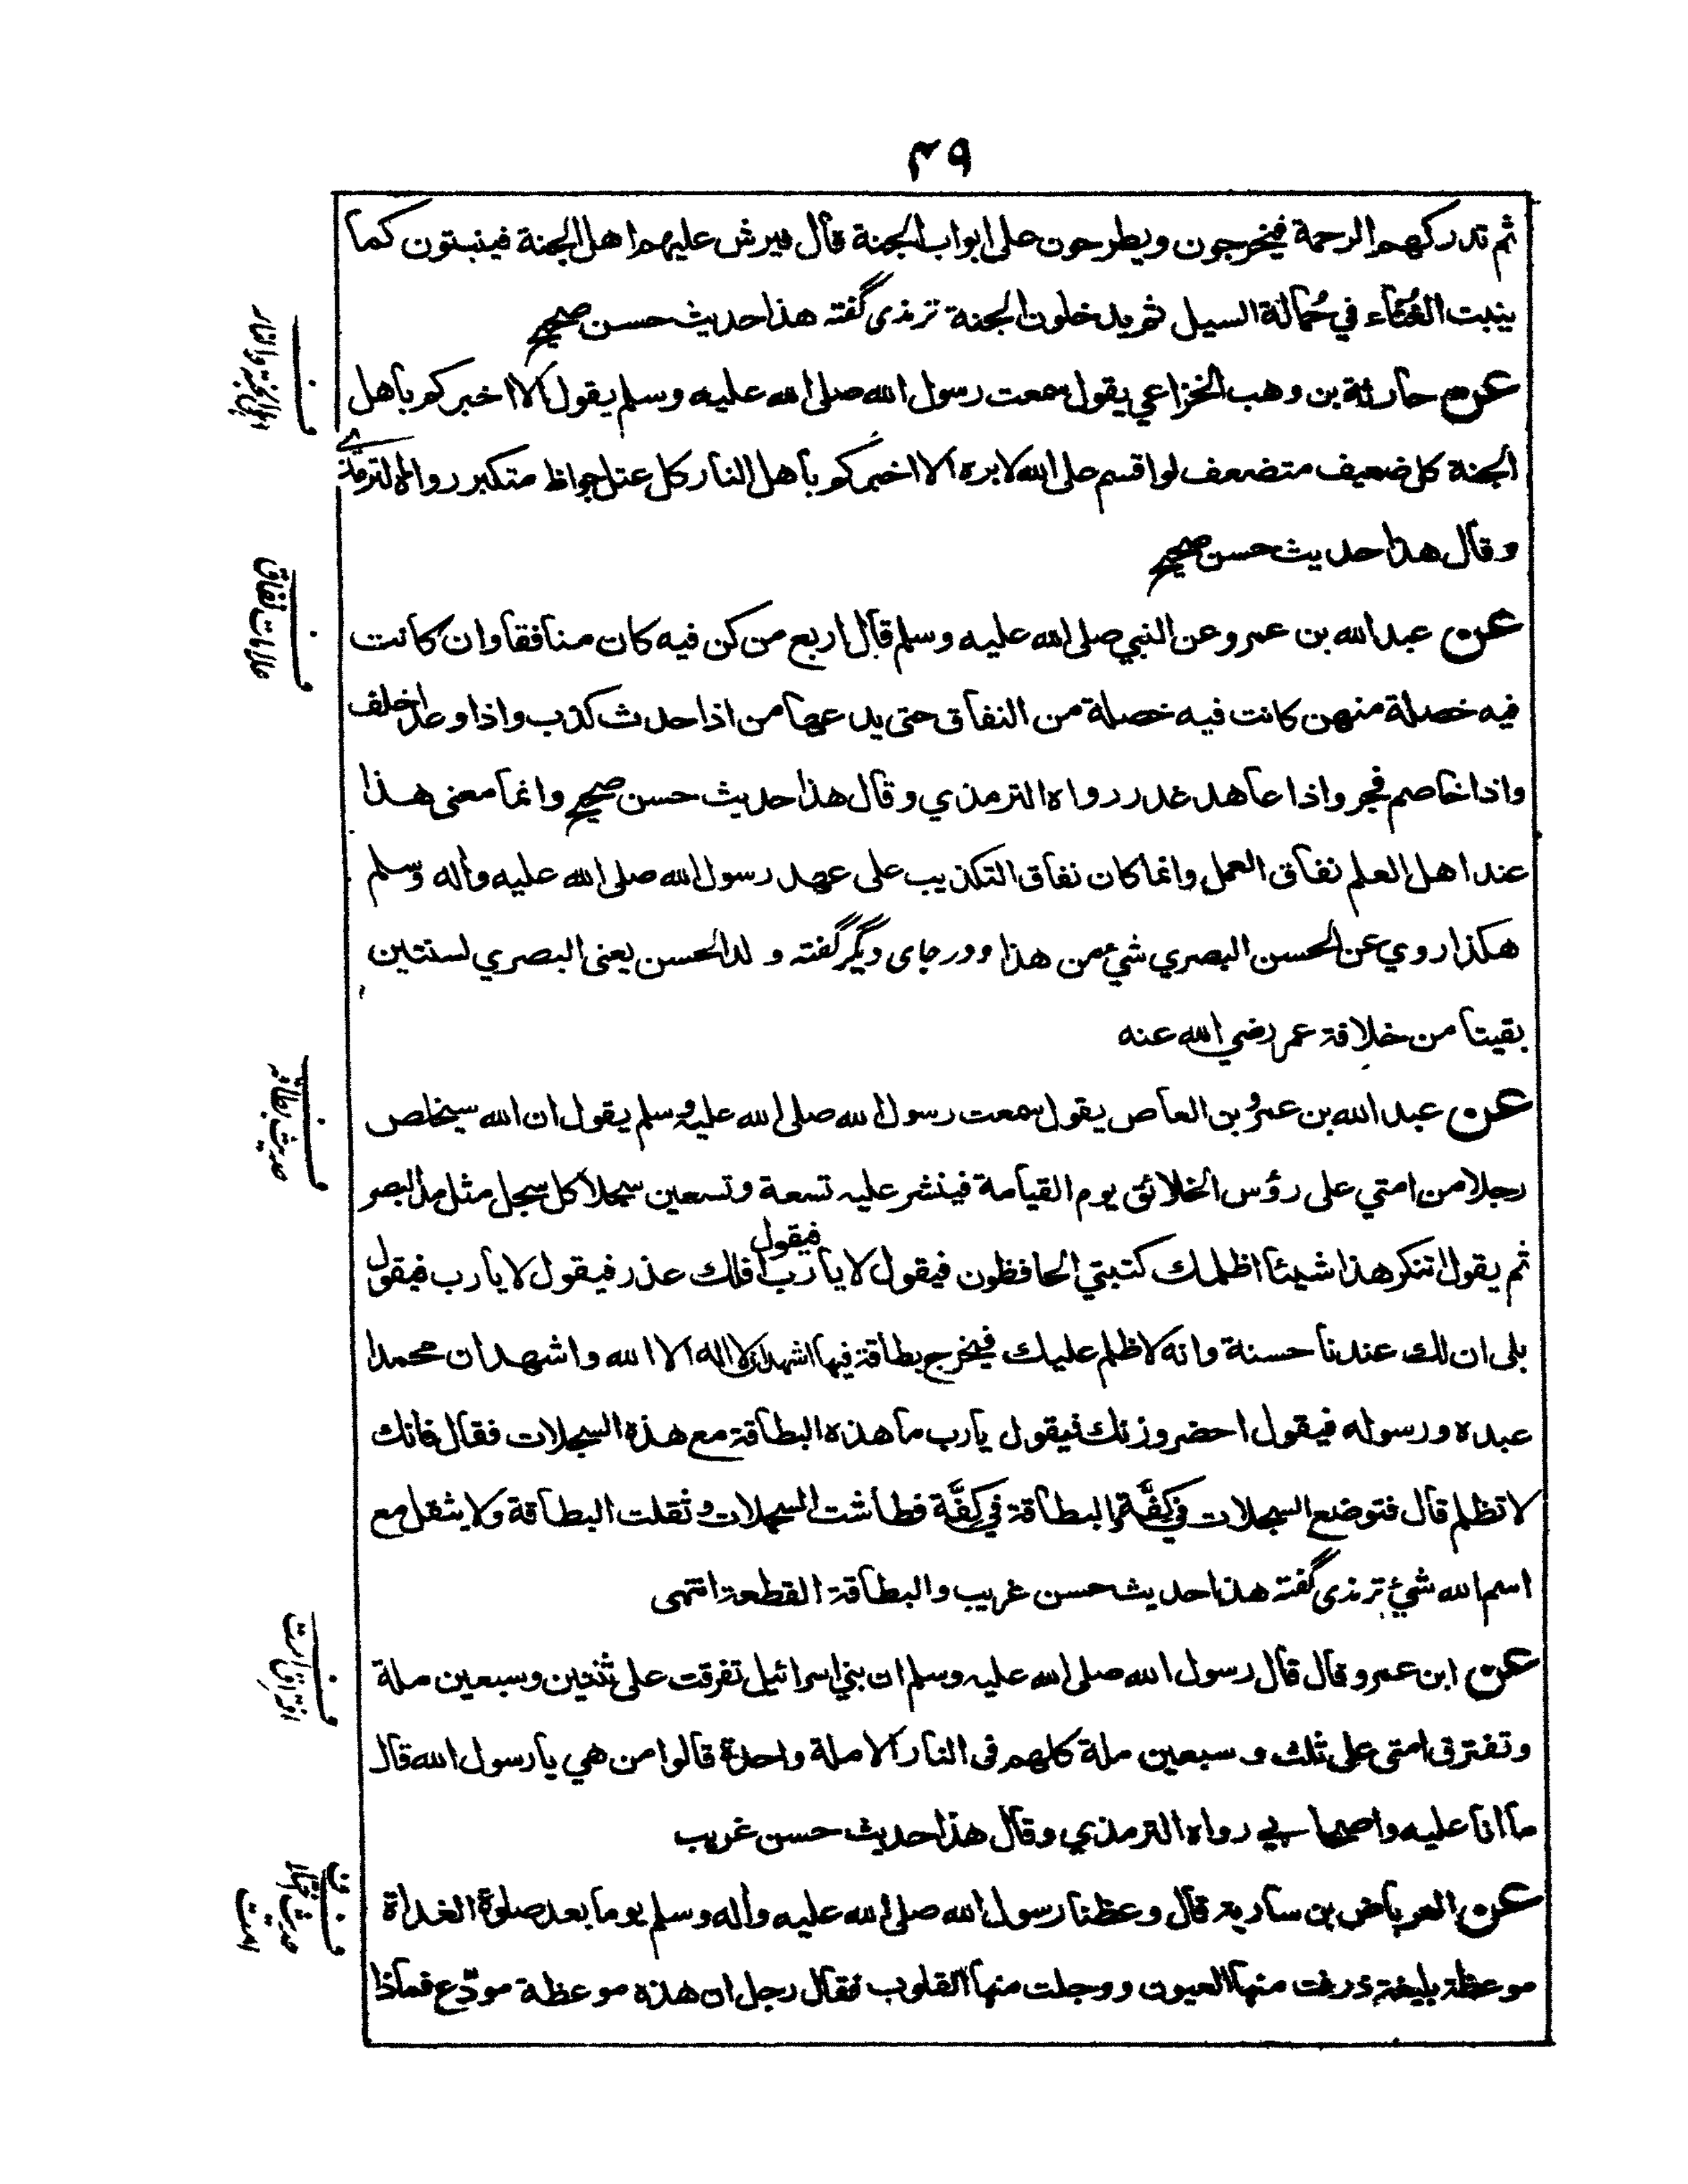 ۴۹
ثم تدركهم الرحمة فيخرجون ويطرحون على ابواب الجنة قال فيرش عليهم اهل الجنة فينبتون كما
ينبت الغُثاء في حُمالة السيل ثم يدخلون الجنة ترمذی گفته هذا حديث حسن صحيح
عن حارثة بن وهب الخزاعي يقول سمعت رسول الله صلى الله عليه وسلم يقول الا اخبركم باهل
الجنة كل ضعيف متضعف لو اقسم على الله لابره الا اخبركم باهل النار كل عتل جواظ متكبر رواه الترمذي
وقال هذا حديث حسن صحيح
عن عبد الله بن عمرو عن النبي صلى الله عليه وسلم قال اربع من كن فيه كان منافقا وان كانت
فيه خصلة منهن كانت فيه خصلة من النفاق حتى يدعها من اذا حدث كذب واذا وعد اخلف
واذا خاصم فجر واذا عاهد غدر رواه الترمذي وقال هذا حديث حسن صحيح وانما معنى هذا
عند اهل العلم نفاق العمل وانما كان نفاق التكذيب على عهد رسول الله صلى الله عليه واله وسلم
هكذا روي عن الحسن البصري شئ من هذا ودر جای دیگر گفته ولد الحسن يعنى البصري لسنتين
بقيتا من خلافة عمر رضي الله عنه
عن عبد الله بن عمرو بن العاص يقول سمعت رسول الله صلى الله عليه وسلم يقول ان الله سيخلص
رجلا من امتي على رؤس الخلائق يوم القيامة فينشر عليه تسعة وتسعين سجلا كل سجل مثل مد البصر
ثم يقول اتنكر هذا شيئا اظلمك كتبتي الحافظون فيقول لا يا رب فيقول افلك عذر فيقول لا يا رب فيقول
بلى ان لك عندنا حسنة وانه لا ظلم عليك فيخرج بطاقة فيها اشهد ان لا اله الا الله واشهد ان محمدا
عبده ورسوله فيقول احضر وزنك فيقول يا رب ما هذه البطاقة مع هذه السجلات فقال فانك
لا تظلم قال فتوضع السجلات في كِفَّة والبطاقة في كِفَّة فطاشت السجلات وثقلت البطاقة ولا يثقل مع
اسم الله شئ ترمذی گفته هذا حديث حسن غريب والبطاقة القطعة انتهى
عن ابن عمرو قال قال رسول الله صلى الله عليه وسلم ان بني اسرائيل تفرقت على ثنتين وسبعين ملة
وتفترق امتى على ثلث وسبعين ملة كلهم فى النار الا ملة واحدة قالوا من هي يا رسول الله قال
ما انا عليه واصحابي رواه الترمذي وقال هذا حديث حسن غريب
عن العرباض بن سارية قال وعظنا رسول الله صلى الله عليه واله وسلم يوما بعد صلوة الغداة
موعظة بليغة ذرفت منها العيون ووجلت منها القلوب فقال رجل ان هذه موعظة مودّع فماذا
علامات نفاق
حديث بطاقة
افتراق امت